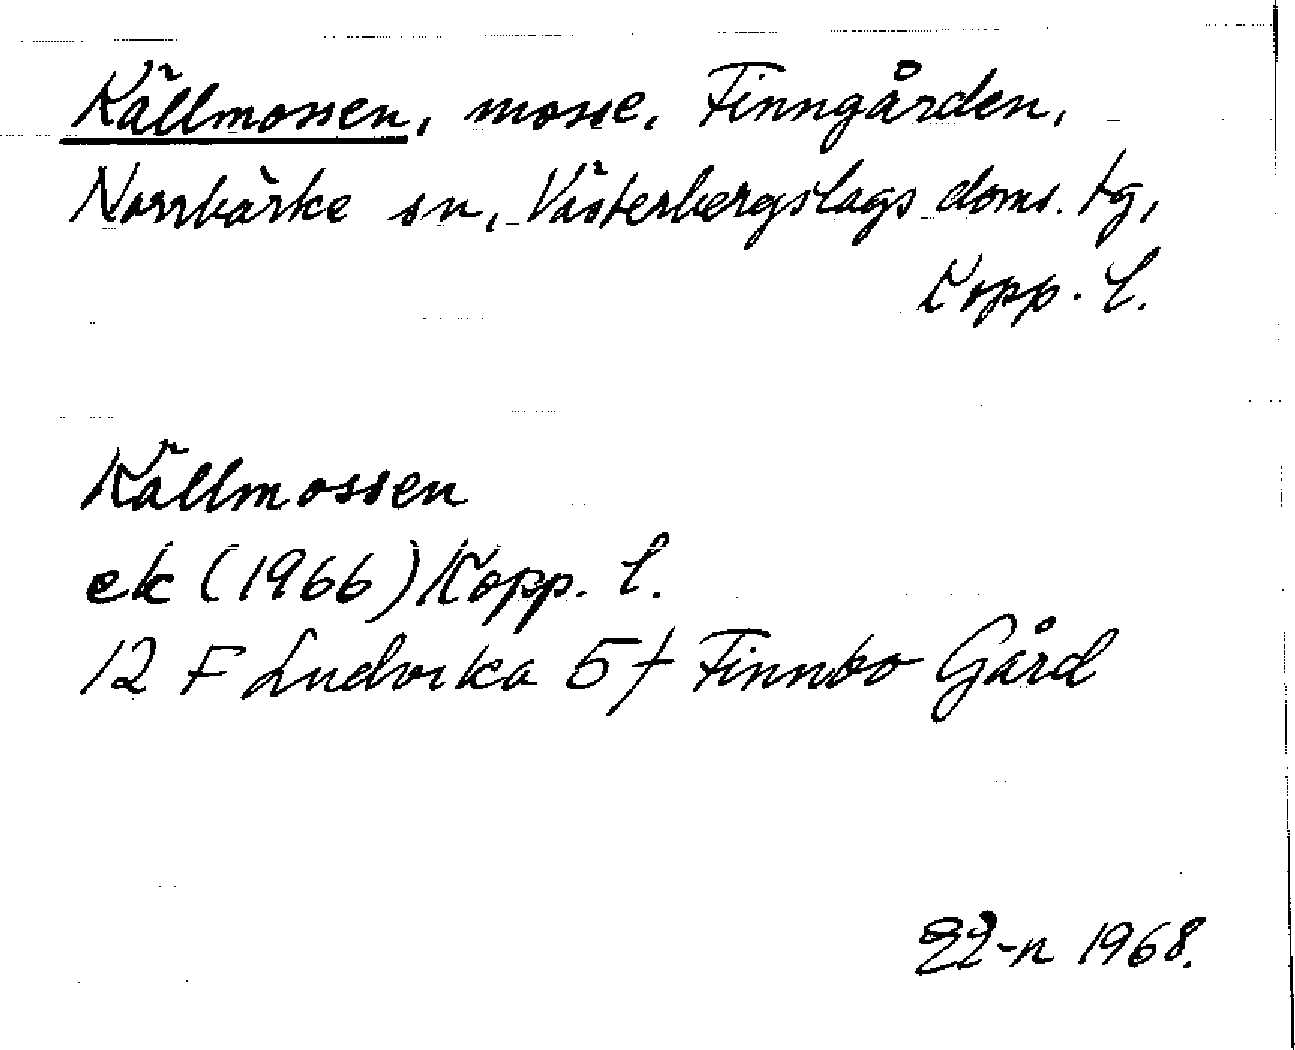 Källmossen, mosse, Finngården,
Norrbärke sn, Västerbergslags doms. tg,
Kopp. l.
Källmossen
ek (1966) Kopp. l.
12 F Ludvika 5 f Finnbo Gård
1968.